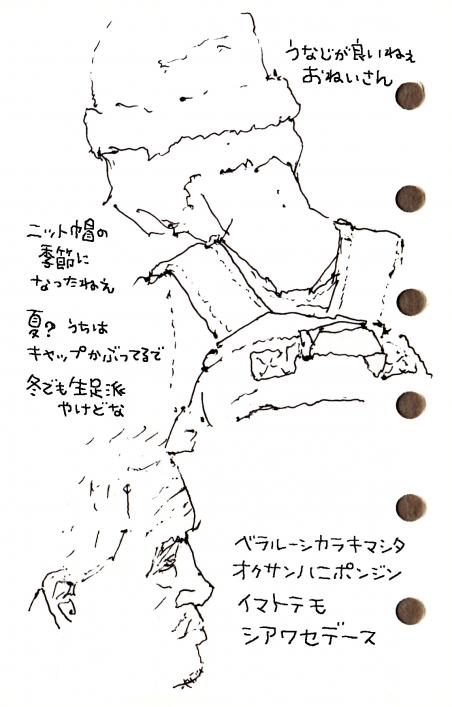 うなじが良いねぇ
おねいさん
ニット帽の
季節に
なったねぇ
夏? うちは
キャップかぶってるで
冬でも生足派
やけどな
ベラルーシカラキマシタ
オクサンハニポンジン
イマトテモ
シアワセデース